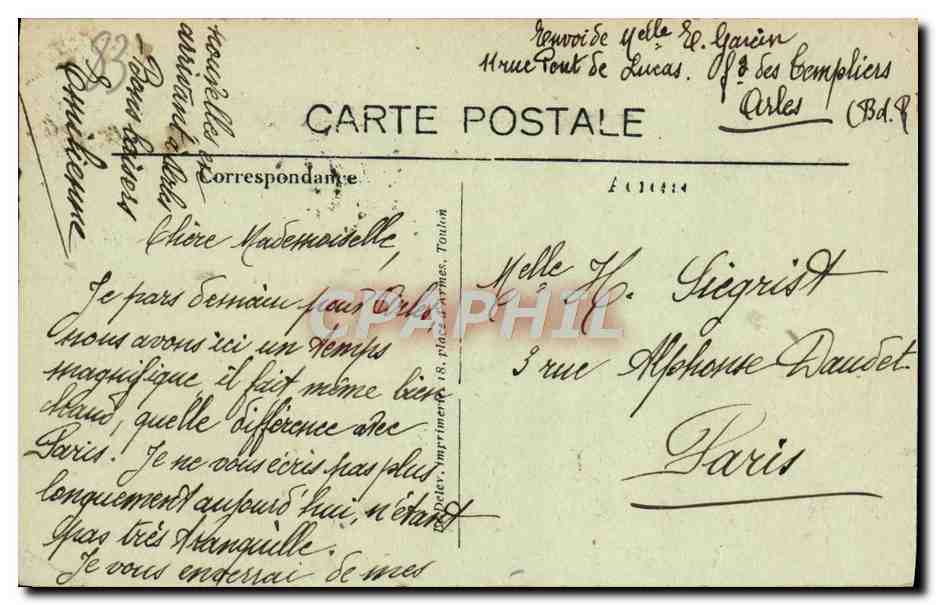 Envoi de Melle E. Garcin
11 rue Pont de Lucas. fg des Templiers
Arles (Bd.R
83
CARTE POSTALE
Correspondance
Chère Mademoiselle,
Je pars demain pour Arles,
nous avons ici un temps
magnifique, il fait même bien
chaud, quelle différence avec
Paris. Je ne vous écris pas plus
longuement aujourd'hui, n'étant
pas très tranquille.
Je vous enverrai de mes
nouvelles en
arrivant à Arles
Bons baisers
Emilienne
Delev. Imprimerie, 18, place d'Armes, Toulon
Melle H. Siegrist
3 rue Alphonse Daudet
Paris
CPAPHIL